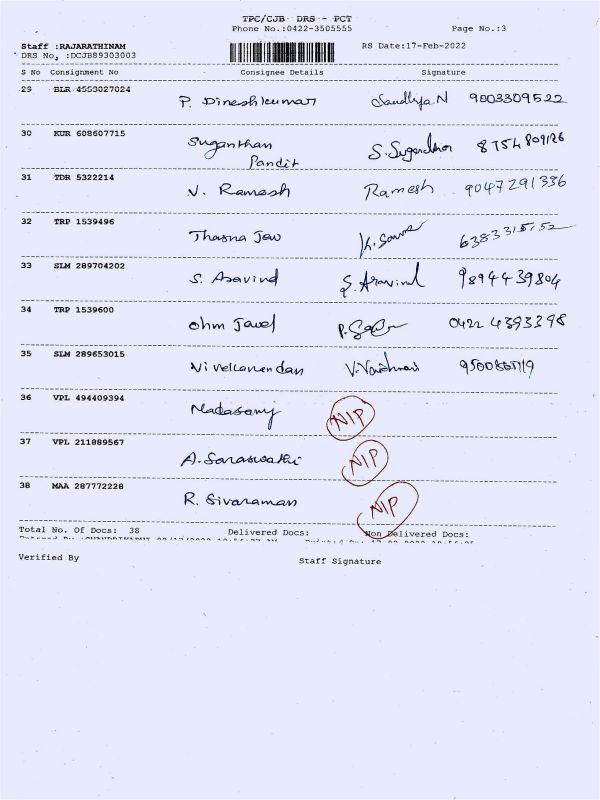 TPC/CJB DRS - PCT
Phone No.:0422-3505555 Page No.:3
Staff :RAJARATHINAM RS Date:17-Feb-2022
DRS No, :DCJB89303003
S No Consignment No Consignee Details Signature
29 BLR 4553027024 P. Dineshkumar Sandhya N 9003309522
30 KUR 608607715 Suganthan S. Sugandhan 8754809126
Pandit
31 TDR 5322214 V. Ramesh Ramesh 9047291336
32 TRP 1539496 6383315152
33 SLM 289704202 S. Aravind S. Aravind 9894439804
34 TRP 1539600 Ohm 0422 4393398
35 SLM 289653015 Vivekanandan
36 VPL 494409394 Madasamy NIP
37 VPL 211889567 A. Saraswathi NIP
38 MAA 287772228 R. Sivaraman NIP
Total No. Of Docs: 38 Delivered Docs: Non Delivered Docs:
Verified By Staff Signature